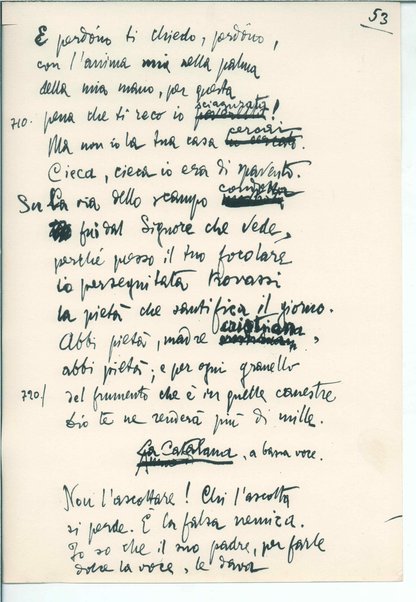 53
E perdóno ti chiedo, perdóno,
con l'anima mia nella palma
della mia mano, per questa
710. pena che ti reco io sciagurata!
Ma non io la tua casa cercai.
Cieca, cieca io era di spavento.
Su la via dello scampo condotta
fui dal Signore che vede,
perché presso il tuo focolare
io perseguitata trovassi
la pietà che santifica il giorno.
Abbi pietà, madre cristiana,
abbi pietà; e per ogni granello
720/ del frumento che è in quelle canestre
Dio te ne renderà più di mille.
La Catalana, a bassa voce.
Non l'ascoltare! Chi l'ascolta
si perde. È la falsa nemica.
Io so che il suo padre, per farle
dolce la voce, le dava